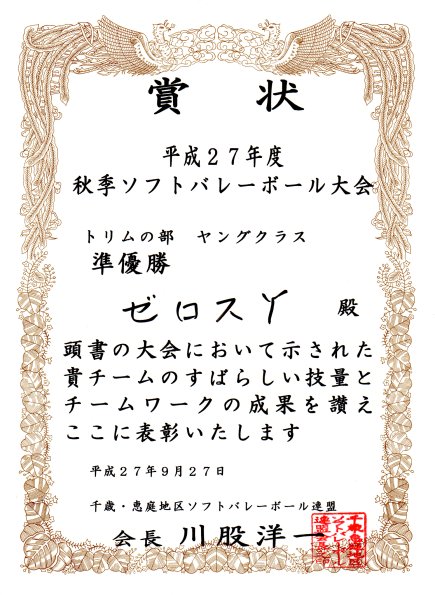 賞状
平成２７年度
秋季ソフトバレーボール大会
トリムの部　ヤングクラス
準優勝
ゼロス丫　殿
頭書の大会において示された
貴チームのすばらしい技量と
チームワークの成果を讃え
ここに表彰いたします
平成２７年９月２７日
千歳・恵庭地区ソフトバレーボール連盟
会長　川股洋一